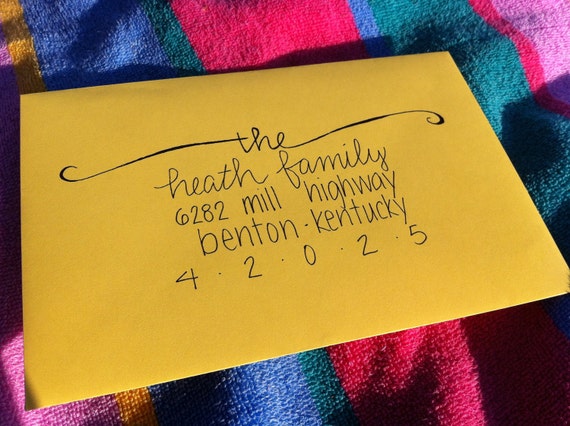 the
heath family
6282 mill highway
benton · kentucky
4 · 2 · 0 · 2 · 5